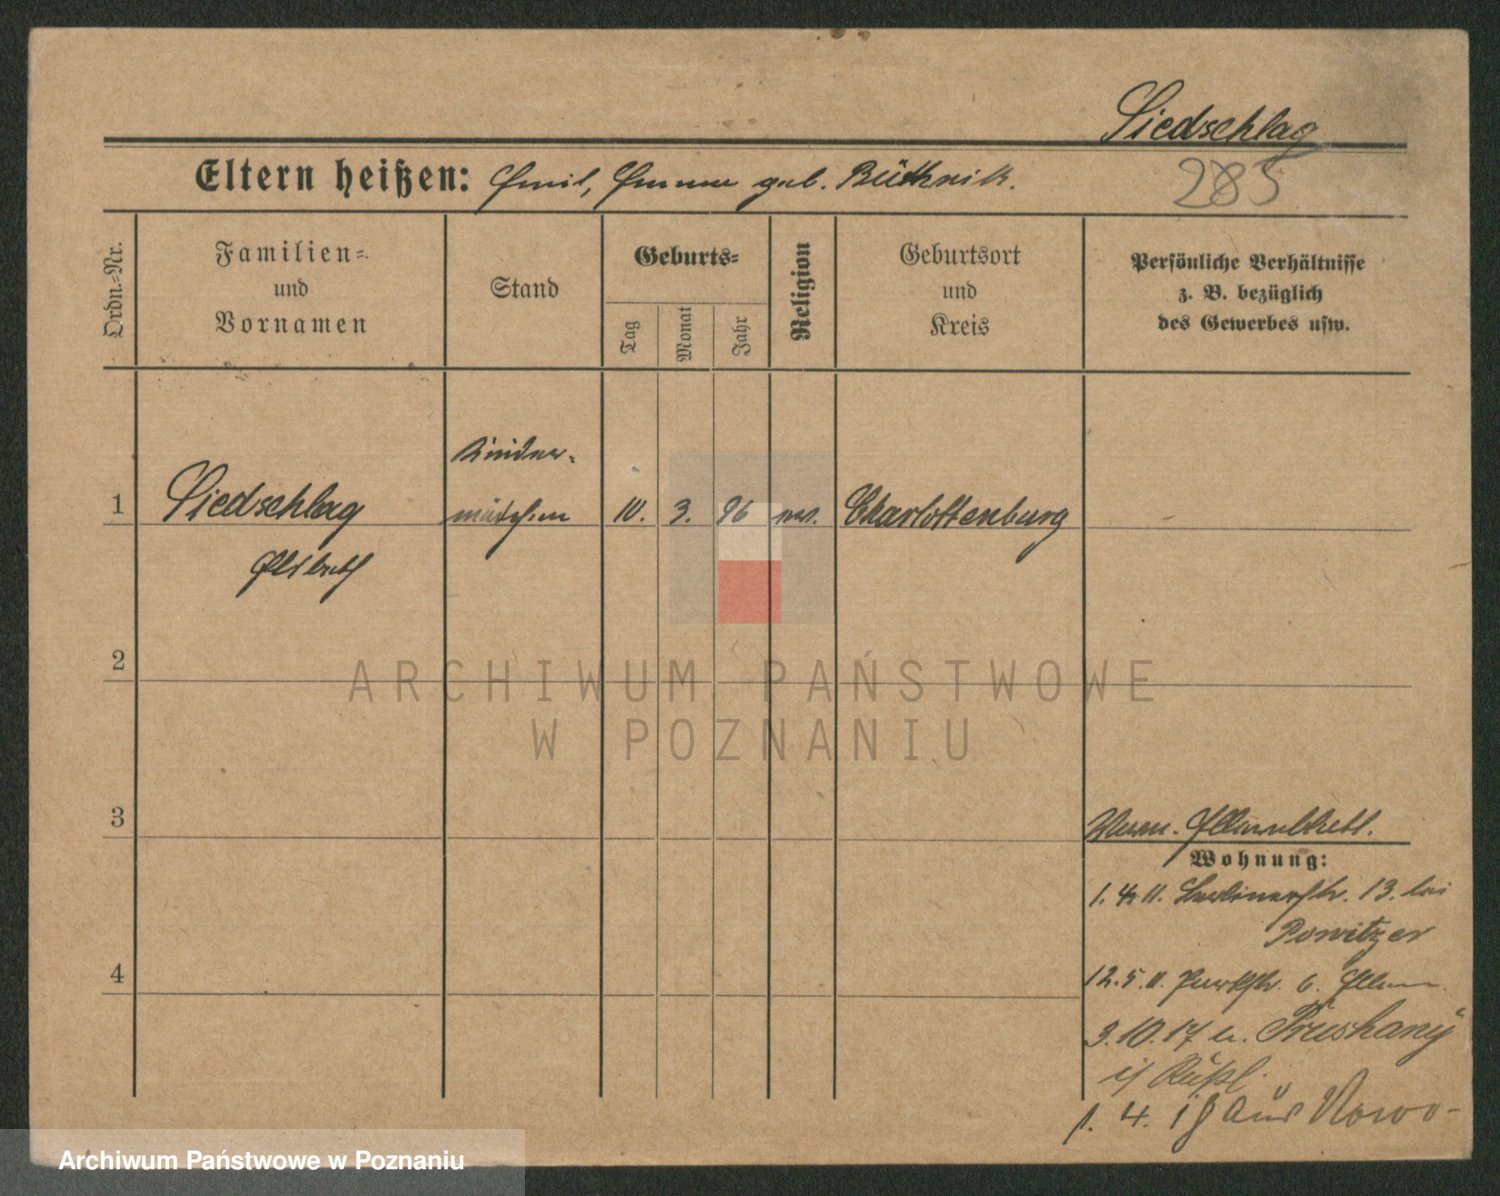 Siedschlag
Eltern heißen: Emil, Emma geb. Büthnik.
283
Ordn.-Nr.
Familien-
und
Vornamen
Stand
Geburts-
Tag
Monat
Jahr
Religion
Geburtsort
und
Kreis
Persönliche Verhältnisse
z. B. bezüglich
des Gewerbes usw.
Kinder-
1 Siedschlag mädchen 10. 3. 96 Charlottenburg
Elsbeth
2
ARCHIWUM PAŃSTWOWE
W POZNANIU
3
Wohnung:
1. 4. 11. Berlinerstr. 13. bei
Powitzer
4
12. 5. 11. Parkstr. 6. Eltern
3. 10. 17 n. Prushany
i/ Rußl.
1. 4. 18 aus Nowo-
Archiwum Państwowe w Poznaniu